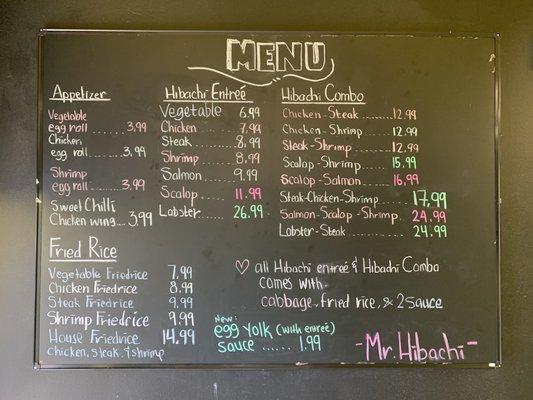 MENU
Appetizer
Vegetable
egg roll ...... 3.99
Chicken
egg roll ...... 3.99
Shrimp
egg roll ...... 3.99
Sweet Chilli
Chicken wing ... 3.99
Fried Rice
Vegetable Friedrice 7.99
Chicken Friedrice 8.99
Steak Friedrice 9.99
Shrimp Friedrice 9.99
House Friedrice 14.99
Chicken, steak, & shrimp
Hibachi Entreé
Vegetable 6.99
Chicken ...... 7.99
Steak ...... 8.99
Shrimp ...... 8.99
Salmon ...... 9.99
Scalop ...... 11.99
Lobster ...... 26.99
Hibachi Combo
Chicken-Steak ...... 12.99
Chicken-Shrimp ...... 12.99
Steak-Shrimp ...... 12.99
Scalop-Shrimp ...... 15.99
Scalop-Salmon ...... 16.99
Steak-Chicken-Shrimp ...... 17.99
Salmon-Scalop-Shrimp ... 24.99
Lobster-Steak ...... 24.99
♡ all Hibachi entreé & Hibachi Combo
comes with
cabbage, fried rice, & 2 sauce
New:
egg Yolk (with entreé)
sauce ...... 1.99
-Mr. Hibachi-